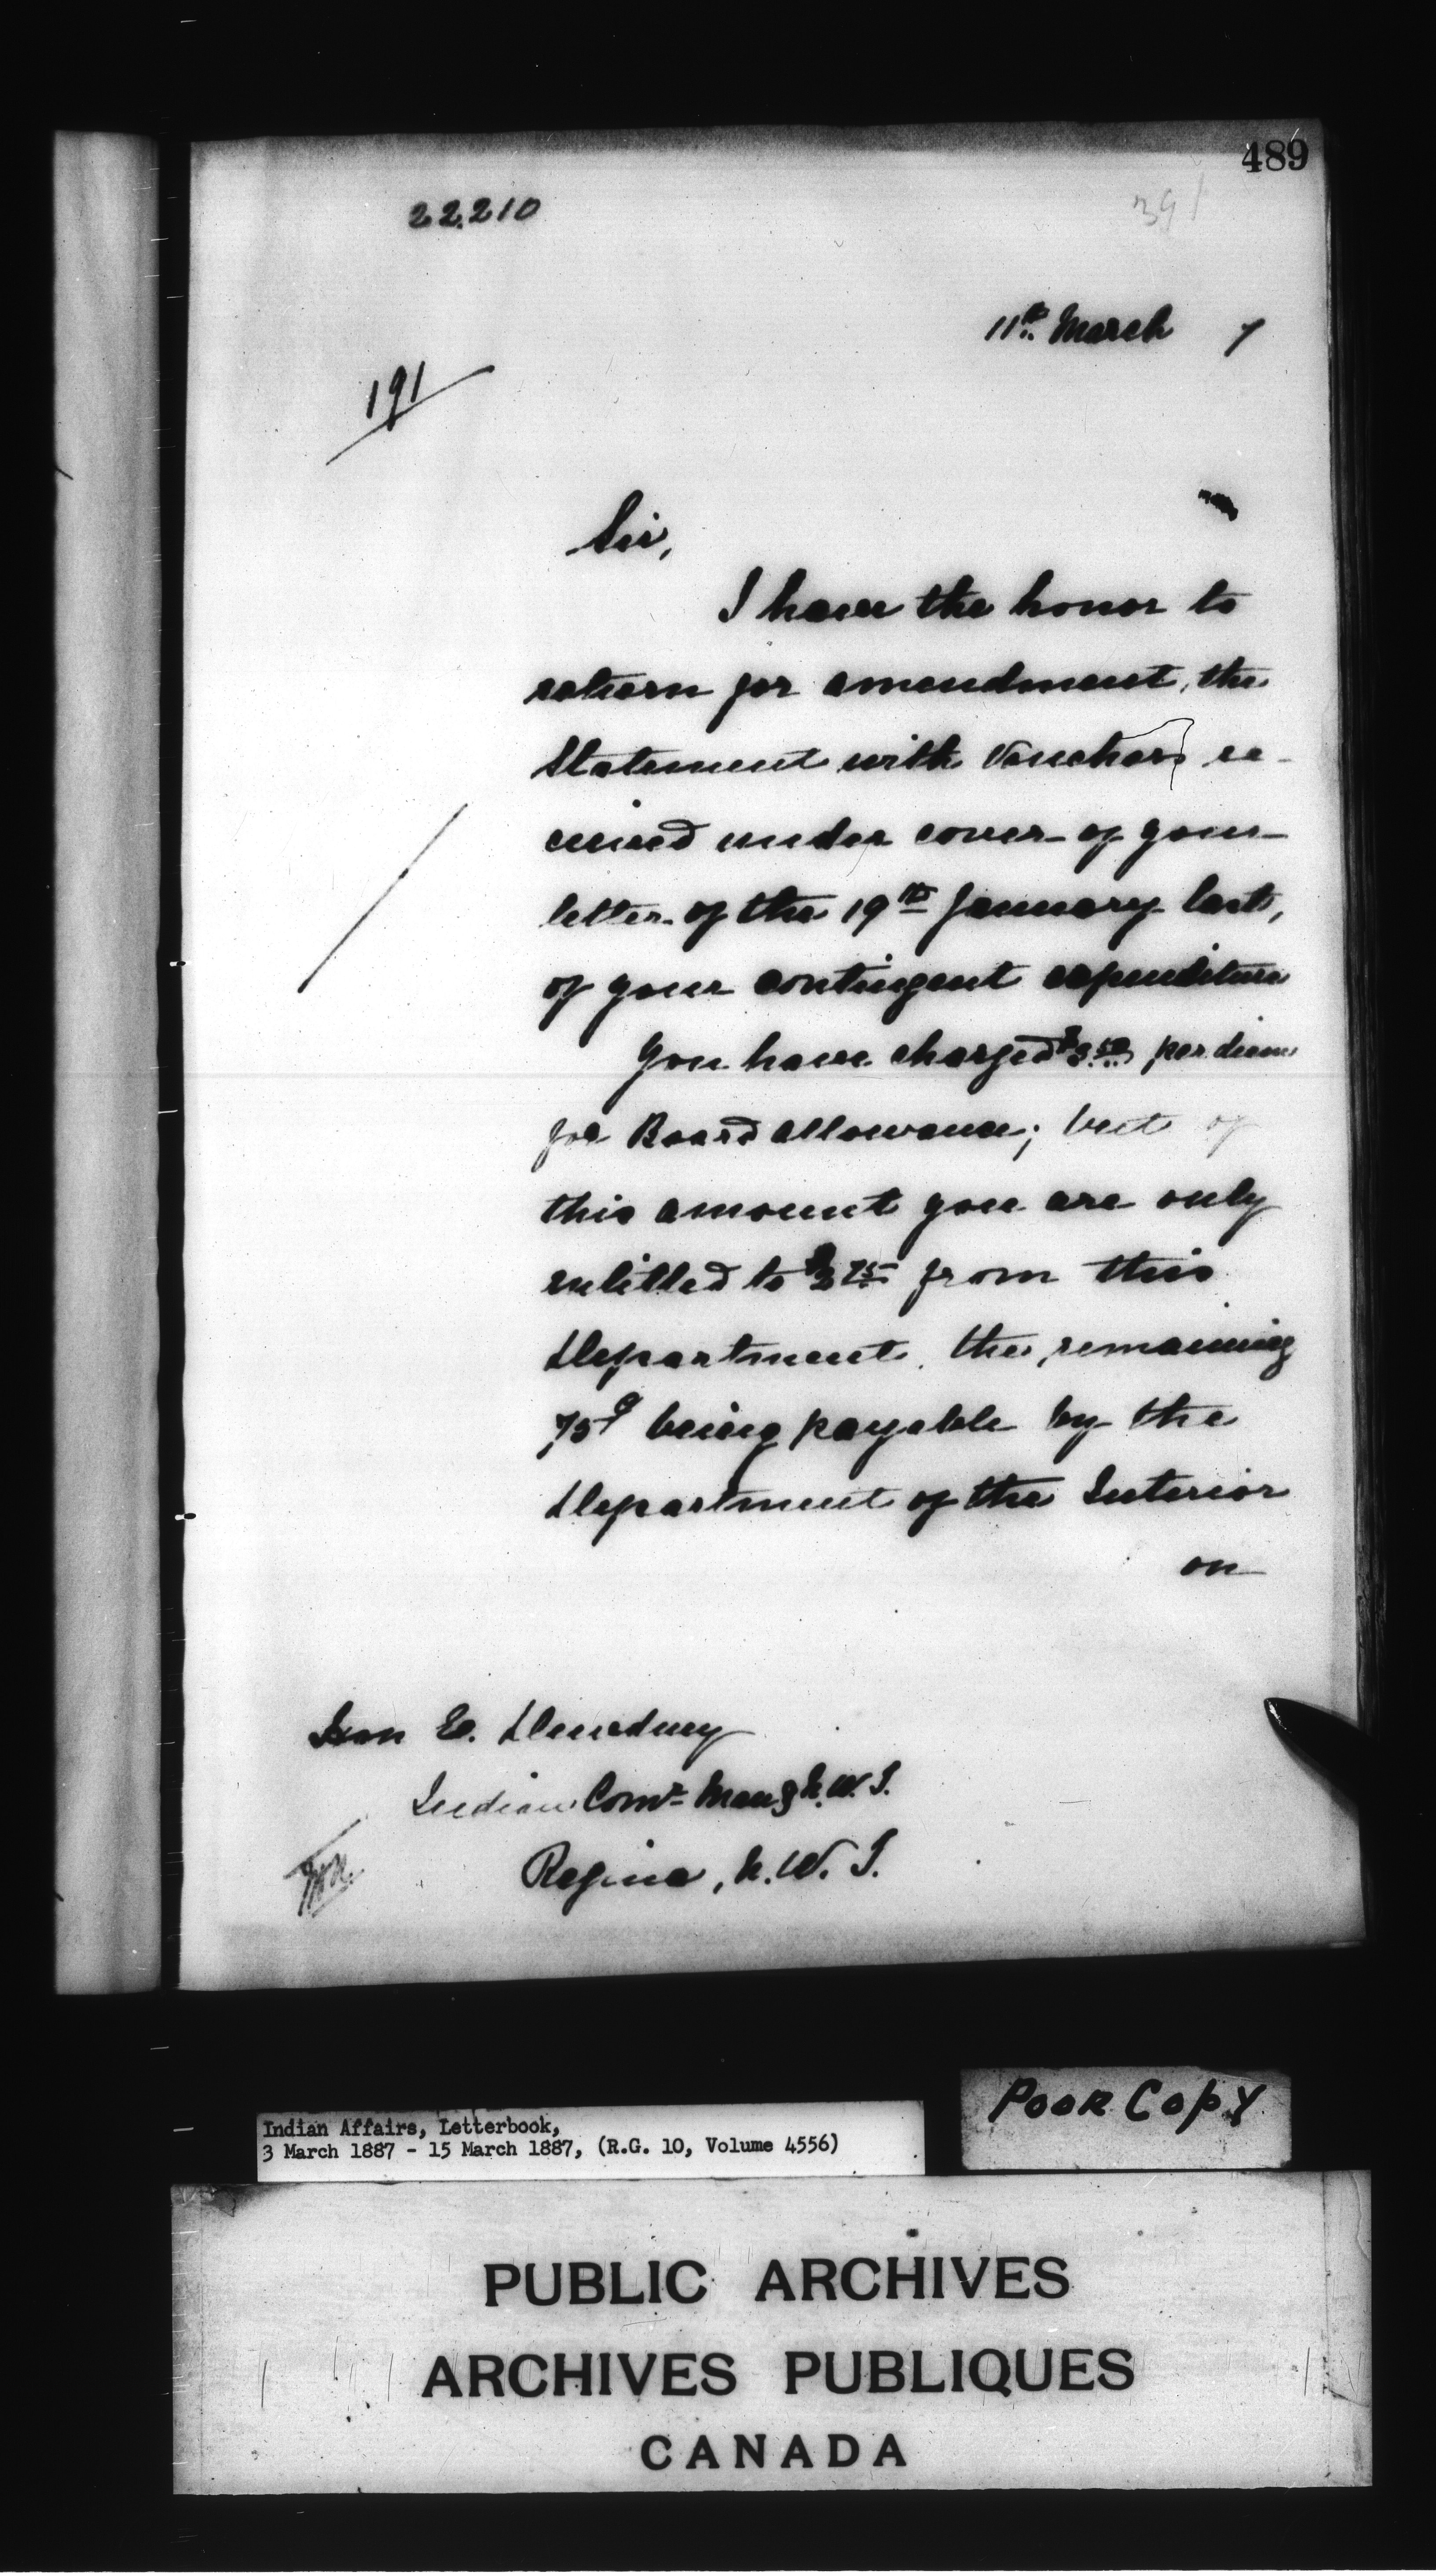 489
391
22.210
11th March 7
191
Sir,
I have the honor to
return for amendment, the
Statement with Vouchers re-
ceived under cover of your
letter of the 19th January last,
of your contingent expenditure
You have charged $3.50 per diem
for Board allowance; but of
this amount you are only
entitled to $2.75 from this
Department, the remaining
75c being payable by the
Department of the Interior
on
Hon E. Dewdney
Indian Comr Man & N.W.T.
Regina, N.W.T.
POOR COPY
Indian Affairs, Letterbook,
3 March 1887 - 15 March 1887, (R.G. 10, Volume 4556)
PUBLIC ARCHIVES
ARCHIVES PUBLIQUES
CANADA